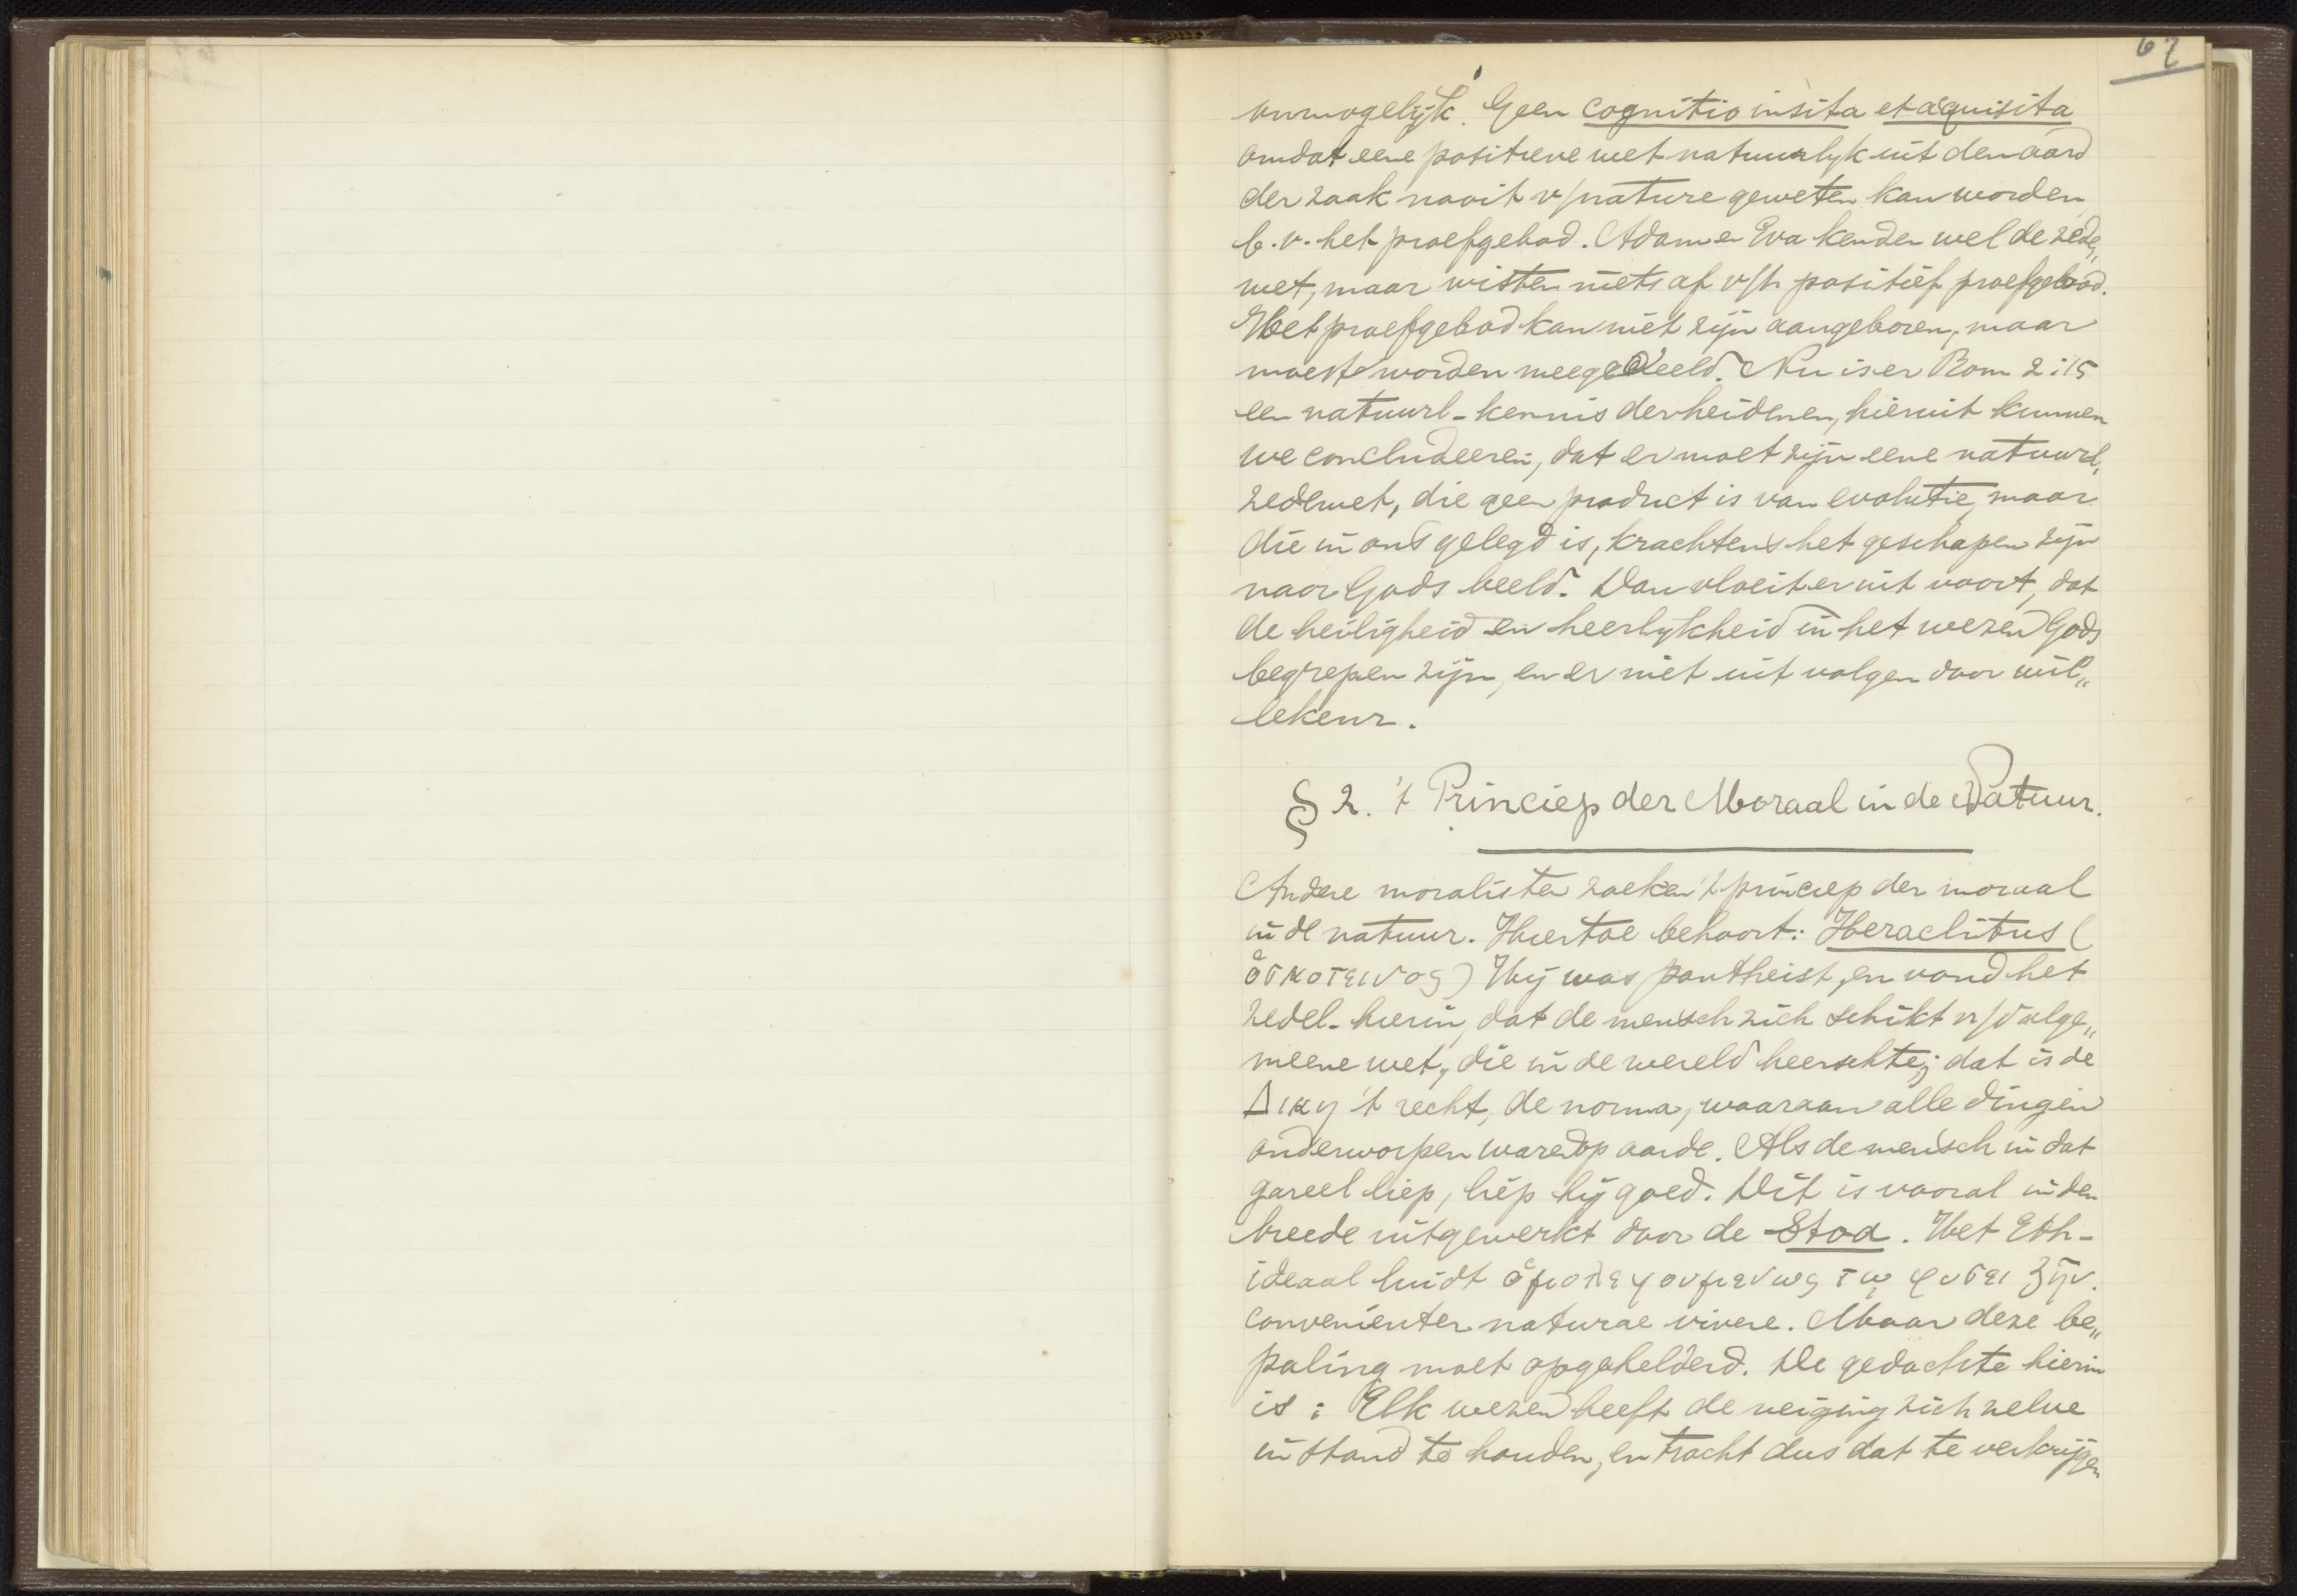 67
onmogelijk. Geen cognitio insita et acquisita
omdat eene positieve wet natuurlyk uit den aard
der zaak nooit v/nature geweten kan worden
b.v. het proefgebod. Adam en Eva kenden wel de zede„
wet, maar wisten niets af v/h positief proefgebod.
Het proefgebod kan niet zijn aangeboren, maar
moest worden meegedeeld. Nu is er Rom 2:15
een natuurl- kennis der heidenen, hieruit kunnen
we concludeeren, dat er moet zijn eene natuurl.
zedewet, die geen product is van evolutie, maar
die in ons gelegd is, krachtens het geschapen zijn
naar Gods beeld. Dan vloeit er uit voort, dat
de heiligheid en heerlykheid in het wezen Gods
begrepen zijn, en er niet uit volgen door wil„
lekeur.
§ 2. 't Princiep der Moraal in de Natuur.
Andere moralisten zoeken 't princiep der moraal
in de natuur. Hiertoe behoort: Heraclitus (
ὁ σκοτεινος) Hij was pantheist, en vond het
zedel- hierin, dat de mensch zich schikt n/d alge„
meene wet, die in de wereld heerschte; dat is de
Δικη 't recht, de norma, waaraan alle dingen
onderworpen waren op aarde. Als de mensch in dat
gareel liep, liep hij goed. Dit is vooral in den
breede uitgewerkt door de Stoa. Het Eth-
ideaal luidt ὁμολεγουμενως τῳ φυσει ζην.
convenienter naturae vivere. Maar deze be„
paling moet opgehelderd. De gedachte hierin
is: Elk wezen heeft de neiging zich zelve
in stand te houden, en tracht dus dat te verkrijgen